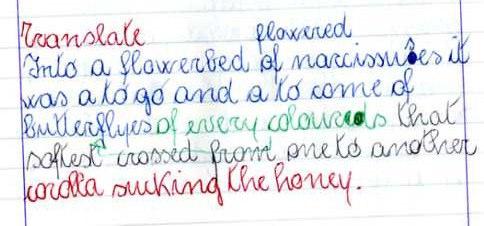 Translate flowered
Into a flowerbed of narcissuses it
was a to go and a to come of
butterflyes of every coloureds that
softest crossed from one to another
corolla sucking the honey.